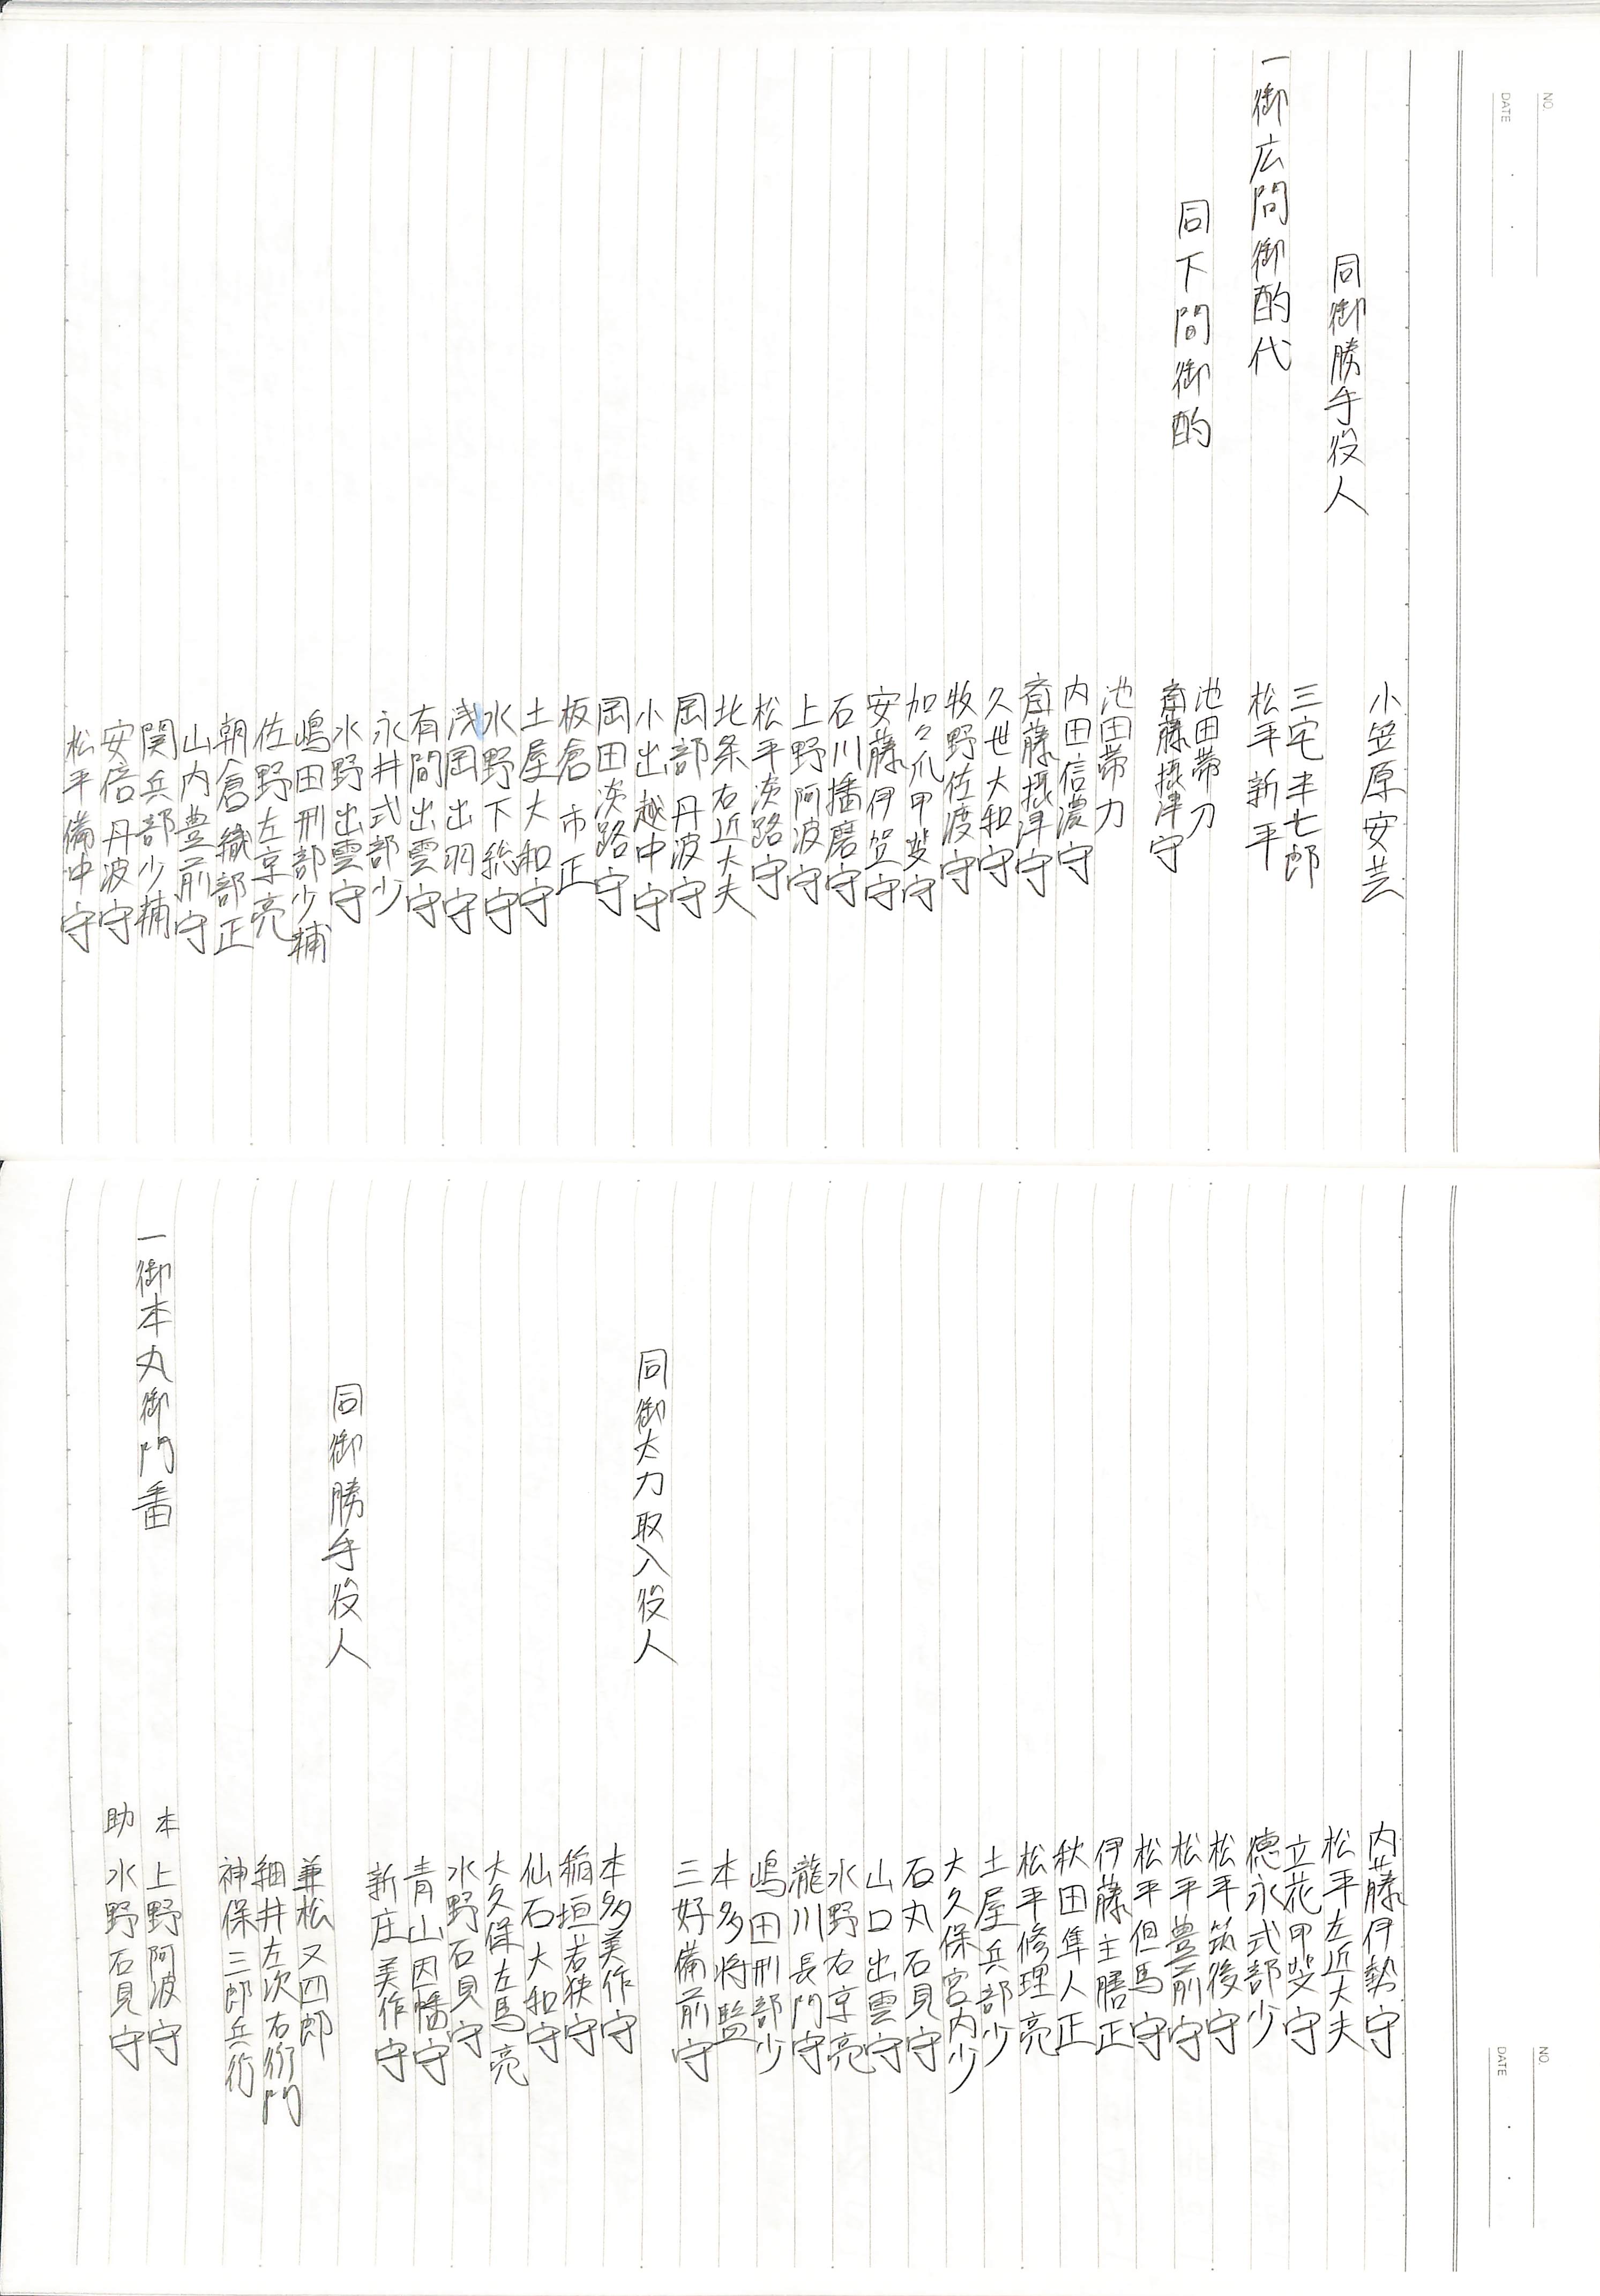 NO.
DATE
小笠原安芸
同御勝手役人
三宅半七郎
一御広間御酌代
松平新平
池田帯刀
同下間御酌
斎藤摂津守
池田帯刀
内田信濃守
斎藤摂津守
久世大和守
牧野佐渡守
加々爪甲斐守
安藤伊賀守
石川播磨守
上野阿波守
松平淡路守
北条右近大夫
岡部丹波守
小出越中守
岡田淡路守
板倉市正
土屋大和守
水野下総守
浅岡出羽守
有間出雲守
永井式部少
水野出雲守
嶋田刑部少輔
佐野左京亮
朝倉織部正
山内豊前守
関兵部少輔
安倍丹波守
松平備中守
NO.
DATE
内藤伊勢守
松平左近大夫
立花甲斐守
徳永式部少
松平筑後守
松平豊前守
松平但馬守
伊藤主膳正
秋田隼人正
松平修理亮
土屋兵部少
大久保宮内少
石丸石見守
山口出雲守
水野右京亮
瀧川長門守
嶋田刑部少
本多将監
三好備前守
同御太刀取入役人
本多美作守
稲垣若狭守
仙石大和守
大久保左馬亮
水野石見守
青山因幡守
新庄美作守
同御勝手役人
兼松又四郎
細井左次右衛門
神保三郎兵衛
一御本丸御門番
本 上野阿波守
助 水野石見守